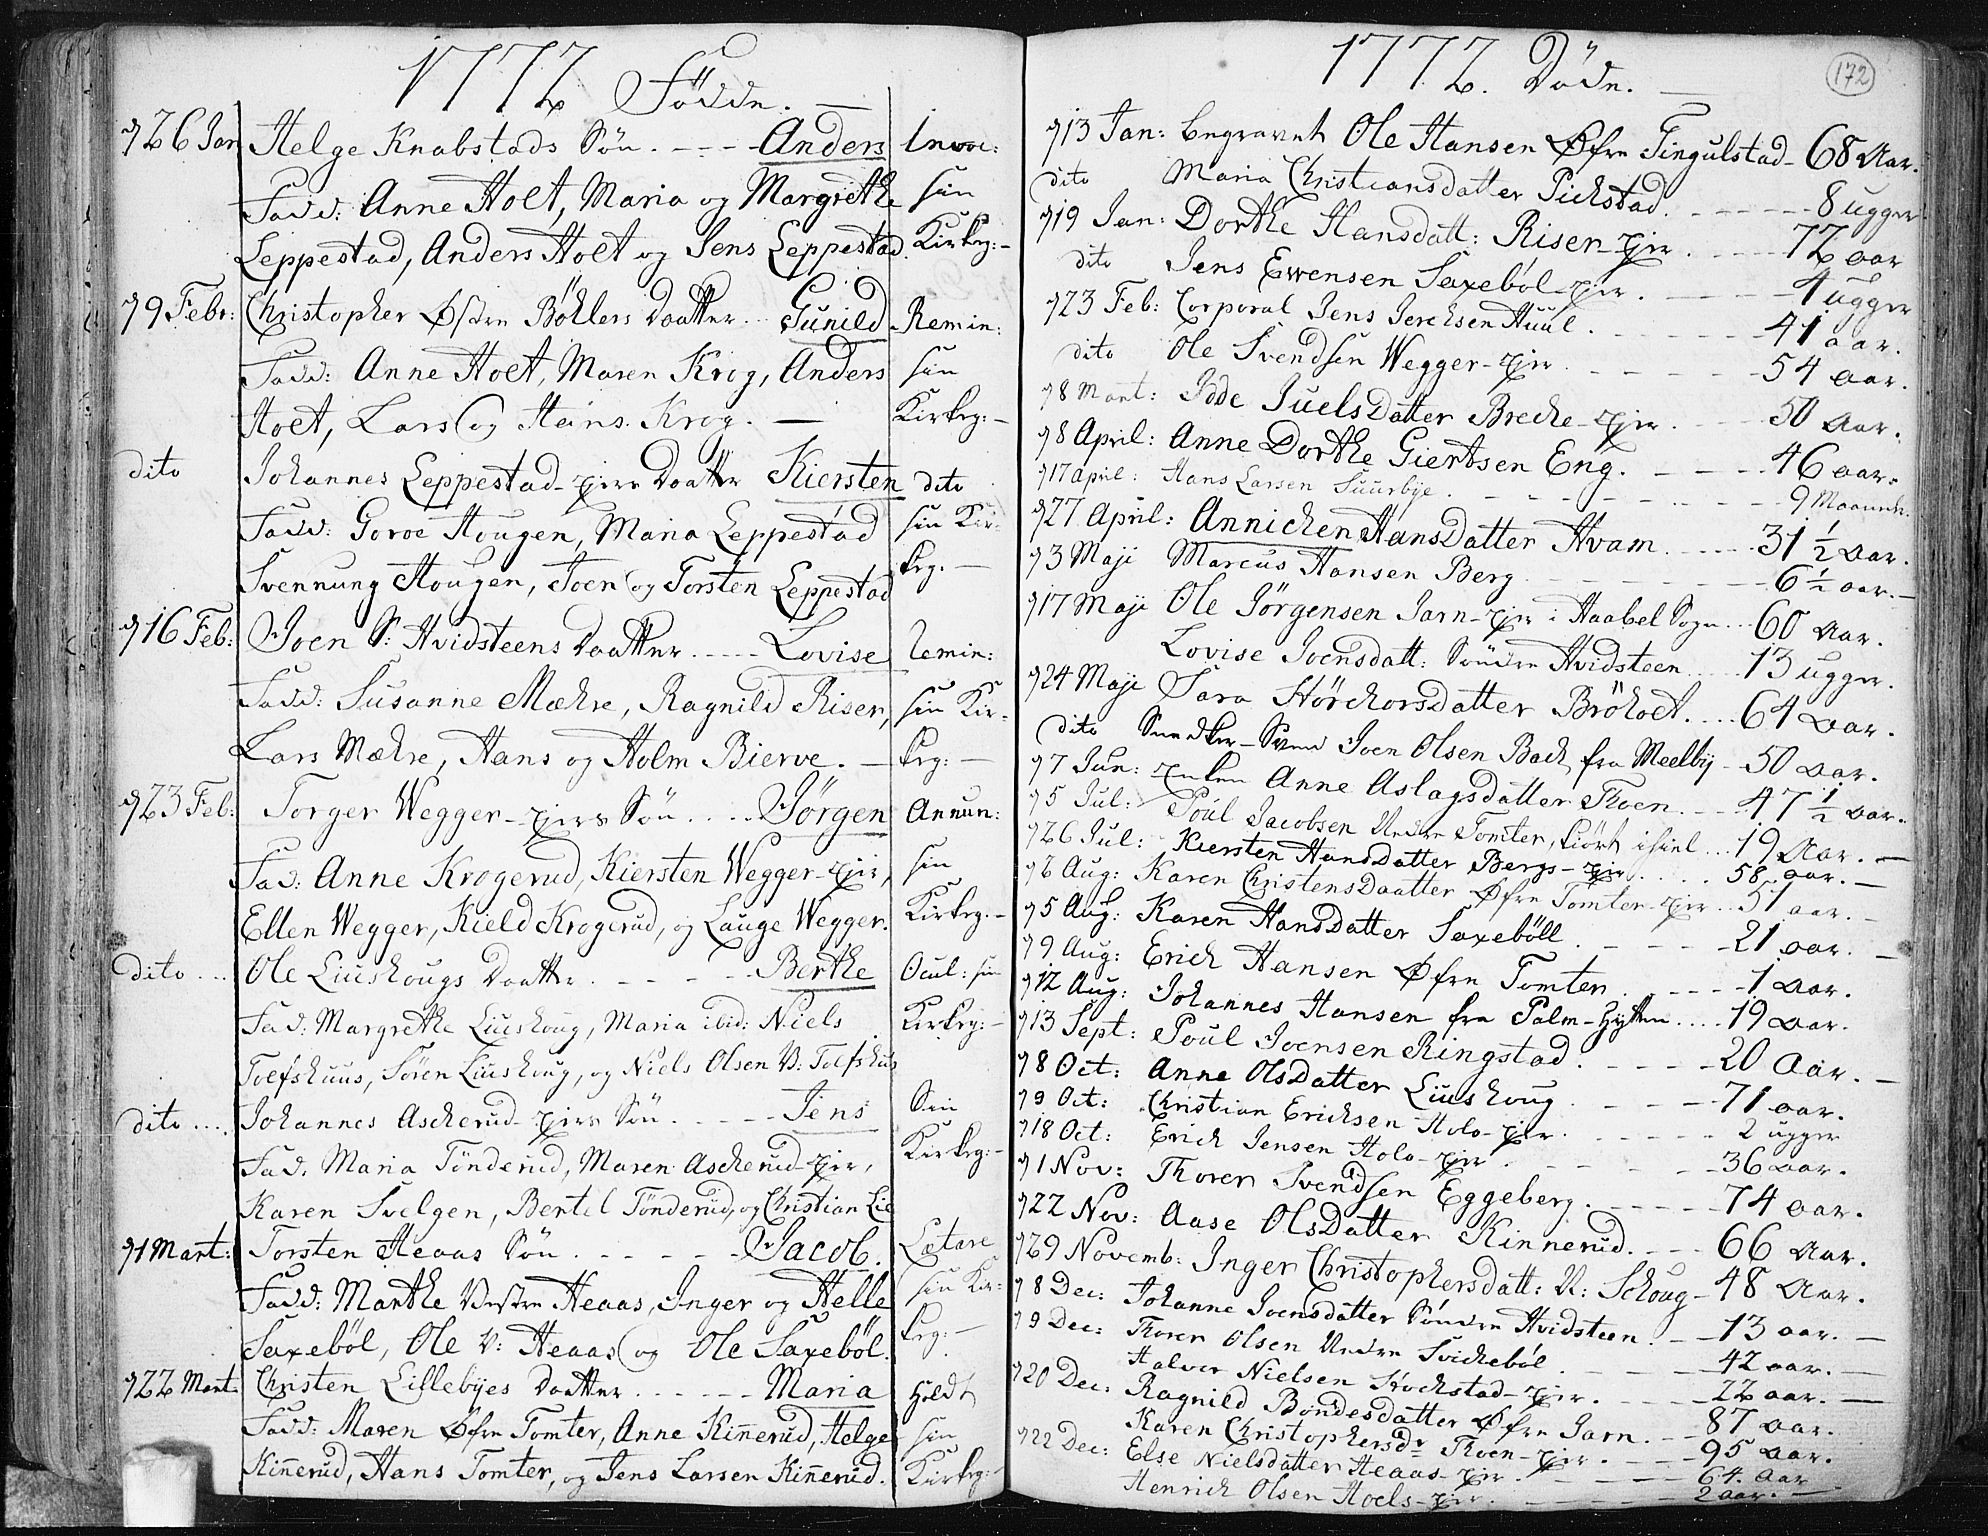 1772 Födde. —
d 26 Jan Helge Knabstads Sön. - - - - Anders Invoc:
Fadd: Anne Holt, Maria og Margrethe sin
Leppestad, Anders Holt og Jens Leppestad. Kirkeg: -
d 9 Febr: Christopher Østre Böhlers Daatter. . . Gunild Remin:
Fadd: Anne Holt, Maren Krog, Anders sin
Holt, Lars og Hans Krog. — Kirkeg: -
dito Johannes Leppestad-ejers Daatter Kiersten dito
Fadd: Goroe Hougen, Maria Leppestad sin Kir-
Svennung Hougen, Joen og Torsten Leppestad keg. —
d 16 Feb: Joen S: Hvidsteens Daatter. . . . . Lovise Remin:
Fadd: Susanne Mæhre, Ragnild Riser, sin Kir-
Lars Mæhre, Hans og Holm Bierve. — keg: —
d 23 Feb: Torger Wegger-ejers Sön . . . . Jörgen Annun:
Fad: Anne Krogerud, Kiersten Wegger-ejer, sin
Ellen Wegger, Kield Krogerud, og Lauge Wegger. Kirkeg. -
dito . . . Ole Liuskougs Daatter. - - - - Berthe Ocul: sin
Fad: Margrethe Liuskoug, Maria ibid: Niels Kirkeg: -
Toefshuus, Sören Liuskoug, og Niels Olsen V: Tolfshus
dito . . . . Johannes Ascherud-ejers Sön . . . . Jens Sin
Fad. Maria Tönderud, Maren Ascherud-ejer, Kirkeg: -
Karen Svelgen, Bertel Tönderud, og Christian Lie
d 1 Mart: Torsten Heaas Sön . - - - - - Jacob. Lætare
Fadd: Marthe Vestre Heaas, Inger og Helle sin Kir-
Saxeböl, Ole V: Heaas og Ole Saxeböl. keg: —
d 22 Mart: Christen Lillebyes Daatter . . . . . . Maria Holdt
Fadd: Maren Øfre Tomter, Anne Kinnerud, Helge sin
Kinnerud, Hans Tomter, og Jens Larsen Kinnerud. Kirkeg: -
1772. Döde. —
172
d 13 Jan: begravet Ole Hansen Øfre Tingulstad - 68 Aar.
dito Maria Christiansdatter Pickstad. - - - - - - 8 ugger
d 19 Jan: Dorthe Hansdatt: Riser-ejer . . . . . . 72 aar
dito Jens Evensen Saxeböl-ejer. - - - - - - 4 ugger
d 23 Feb: Corporal Jens Jerchsen Huul. - - - - - - 41 aar.
dito Ole Svendsen Wegger-ejer. - - - - - - 54 aar.
d 8 Mart: Idde Juels Datter Breche-ejer. . . . . 50 Aar.
d 8 April: Anne Dorthe Giertsen Eng. - - - - - 46 aar.
d 17 april: Hans Larsen Suurbye. - - - - - - - 9 Maaneder.
d 27 April: Annichen Hans Datter Hvam. . . . . . 31 1/2 aar.
d 3 Maji Marcus Hansen Berg. - - - - - - 6 1/2 aar. -
d 17 Maji Ole Jörgensen Jarn-ejer i Haabel Sogn . . . 60 Aar.
Lovise Joensdatt: Söndre Hvidsteen . . . . 13 ugger.
d 24 Maji Sara Hörchorsdatter Bröholt. . . . . 64 Aar.
dito Snedker-Svend Joen Olsen Bach fra Meelby - 50 aar.
d 7 Jun: enken Anne Aslagsdatter Thoen. . . . 47 1/2 aar.
d 5 Jul: Poul Jacobsen Nedre Tomter, kiört ihiel . . . 19 Aar. -
d 26 Jul: Kiersten Hans Datter Bergs-ejer. . . . . 58 aar. -
d 2 Aug: Karen Christens Daatter Øfre Tomter-ejer. . . 51 aar. -
d 5 Aug: Karen Hans Datter Saxeböll. - - - - - 21 aar. -
d 9 Aug: Erich Hansen Øfre Tomter. . . . . 1 aar.
d 12 Aug: Johannes Hansen fra Palm-hytten . . . . 19 aar.
d 13 Sept: Poul Joensen Ringstad. . . . . . 20 Aar. -
d 8 Oct: Anne Ols Datter Liuskoug. . . . . . 71 aar.
d 9 Oct: Christian Erichsen Holo-ejer. . . . . . 2 ugger
d 18 Oct: Erich Jensen Holo-ejer. - - - - - - 36 aar.
d 1 Nov: Thorer Svendsen Eggeberg. . . . . . 74 aar.
d 22 Nov: Aase Ols Datter Kinnerud. - - - - 66 Aar.
d 29 Novemb: Inger Christophersdatt: N: Schoug - 48 Aar.
d 8 Dec: Johanne Joensdatter Söndre Hvidsteen. - - 13 aar. -
d 9 Dec: Thorer Olsen Nedre Svicheböl . . . . . 42 aar. -
Halvor Nielsen Stochstad-ejer. . . . . . 22 aar. -
d 20 Dec: Ragnild Bondesdatter Øfre Jarn. . . . 87 aar.
Karen Christophersdr Thoen-ejer. . . . . 95 aar.
d 22 Dec: Else Nielsdatter Heaas-ejer. . . . . . 64 Aar
Henrich Olsen Hoels-ejer. - - - - - - 2 aar. -